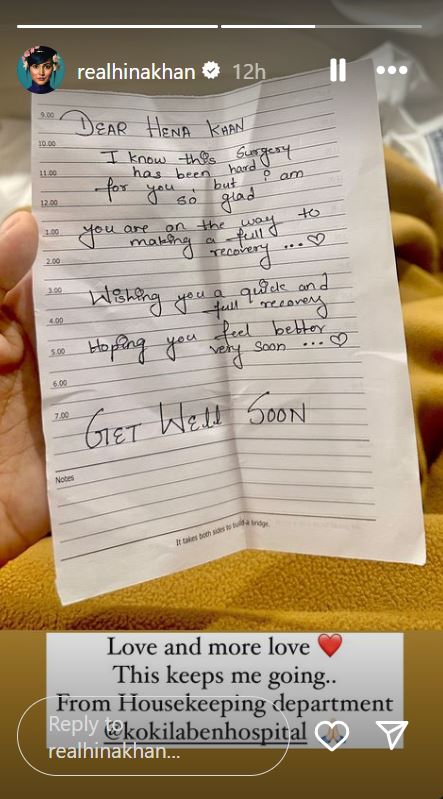 realhinakhan 12h
9.00
DEAR HENA KHAN
10.00
I know this Surgery
11.00
has been hard
for you, but i am
12.00
so glad
1.00
you are on the way to
making a full
2.00
recovery ...♡
3.00
Wishing you a quick and
full recovery
4.00
Hoping you feel better
5.00
very soon ...♡
6.00
7.00
GET WEll SOON
Notes
It takes both sides to build a bridge.
Love and more love ❤️
This keeps me going..
From Housekeeping department
@kokilabenhospital 🙏🏻
Reply to
realhinakhan...